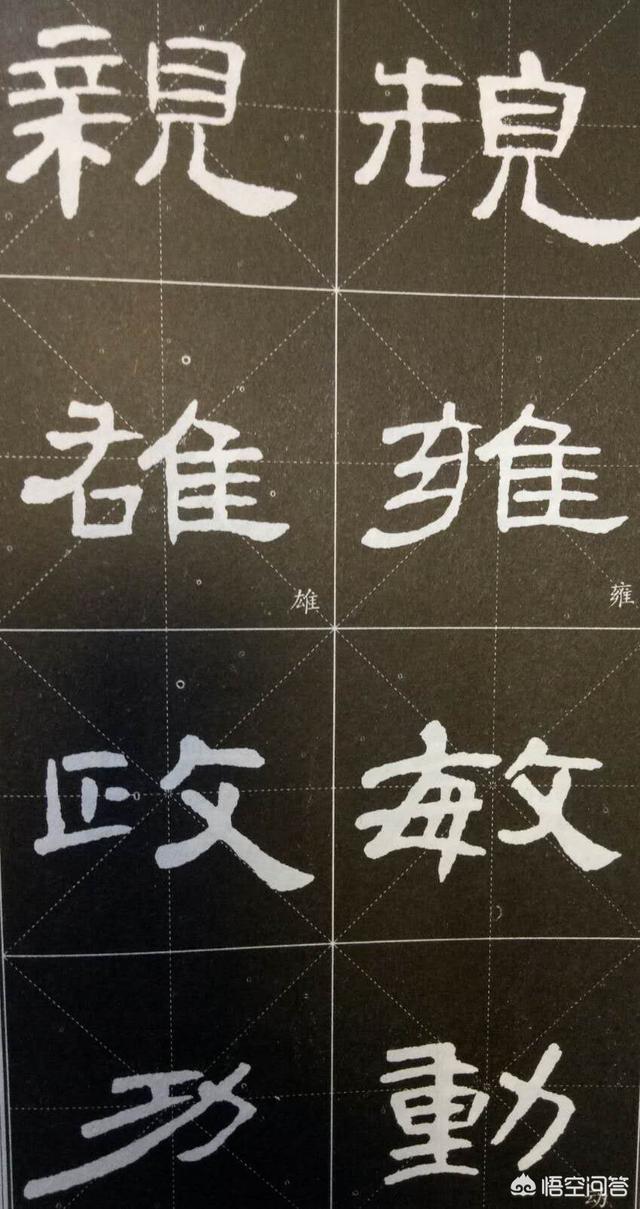 規雍敏動
雍
親雄政功
雄
悟空问答